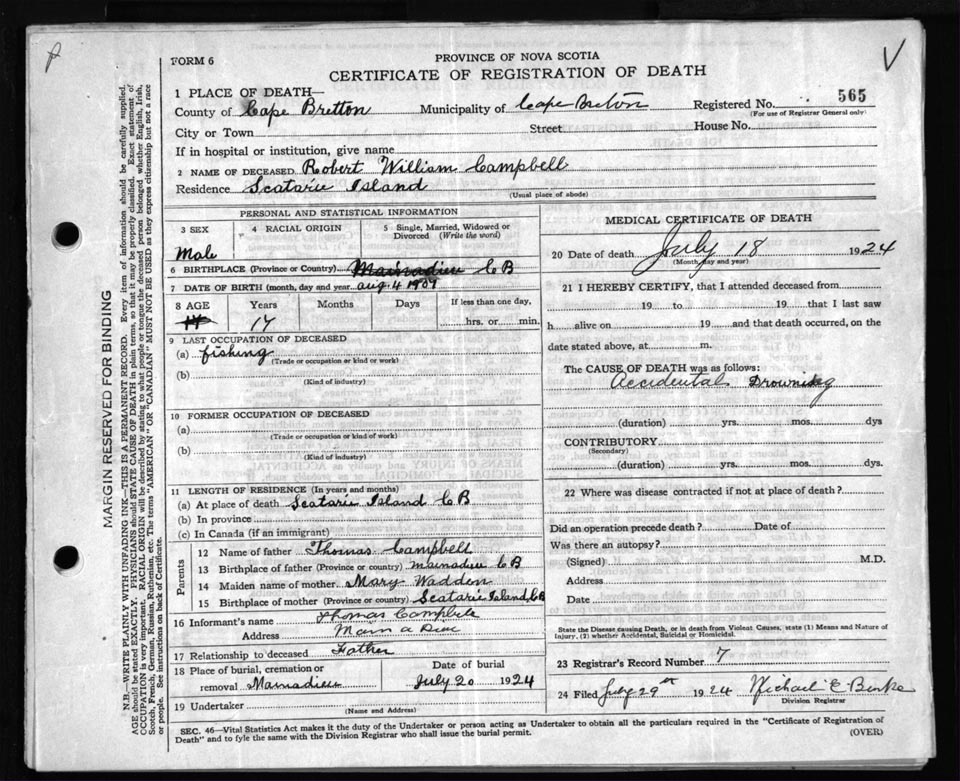 FORM 6
PROVINCE OF NOVA SCOTIA
CERTIFICATE OF REGISTRATION OF DEATH
1 PLACE OF DEATH—
County of Cape Bretton Municipality of Cape Breton Registered No. 565
(For use of Registrar General only)
City or Town Street House No.
If in hospital or institution, give name
2 NAME OF DECEASED Robert William Campbell
Residence Scatarie Island
(Usual place of abode)
PERSONAL AND STATISTICAL INFORMATION
3 SEX 4 RACIAL ORIGIN 5 Single, Married, Widowed or Divorced (Write the word)
Male
6 BIRTHPLACE (Province or Country) Mainadieu C B
7 DATE OF BIRTH (month, day and year) Aug 4 1907
8 AGE Years Months Days If less than one day,
17 hrs. or min.
9 LAST OCCUPATION OF DECEASED
(a) fishing
(Trade or occupation or kind or work)
(b)
(Kind of industry)
10 FORMER OCCUPATION OF DECEASED
(a)
(Trade or occupation or kind of work)
(b)
(Kind of industry)
11 LENGTH OF RESIDENCE (In years and months)
(a) At place of death Scatarie Island C B
(b) In province
(c) In Canada (if an immigrant)
Parents
12 Name of father Thomas Campbell
13 Birthplace of father (Province or country) Mainadieu C B
14 Maiden name of mother Mary Wadden
15 Birthplace of mother (Province or country) Scatarie Island, C B
16 Informant's name Thomas Campbell
Address Main a Dieu
17 Relationship to deceased Father
18 Place of burial, cremation or removal Mainadieu Date of burial July 20 1924
19 Undertaker
(Name and Address)
MEDICAL CERTIFICATE OF DEATH
20 Date of death July 18 1924
(Month, day and year)
21 I HEREBY CERTIFY, that I attended deceased from
19 to 19 that I last saw
h alive on 19 and that death occurred, on the
date stated above, at m.
The CAUSE OF DEATH was as follows:
Accidental Drowning
(duration) yrs. mos. dys
CONTRIBUTORY
(Secondary)
(duration) yrs. mos. dys.
22 Where was disease contracted if not at place of death?
Did an operation precede death? Date of
Was there an autopsy?
(Signed) M.D.
Address
Date
State the Disease causing Death, or in death from Violent Causes, state (1) Means and Nature of
Injury, (2) whether Accidental, Suicidal or Homicidal.
23 Registrar's Record Number 7
24 Filed July 29th 1924 Michael E Burke
Division Registrar
SEC. 46—Vital Statistics Act makes it the duty of the Undertaker or person acting as Undertaker to obtain all the particulars required in the "Certificate of Registration of
Death" and to fyle the same with the Division Registrar who shall issue the burial permit.
(OVER)
MARGIN RESERVED FOR BINDING
N.B.—WRITE PLAINLY WITH UNFADING INK—THIS IS A PERMANENT RECORD. Every item of information should be carefully supplied.
AGE should be stated EXACTLY. PHYSICIANS should STATE CAUSE OF DEATH in plain terms, so that it may be properly classified. Exact statement of
OCCUPATION is very important. RACIAL ORIGIN will be described by stating to what people or tongue the deceased person belonged whether English, Irish,
Scotch, French, German, Russian, Ruthenian, etc. The terms "AMERICAN" or "CANADIAN" MUST NOT BE USED as they express citizenship but not a race
or people. See instructions on back of Certificate.